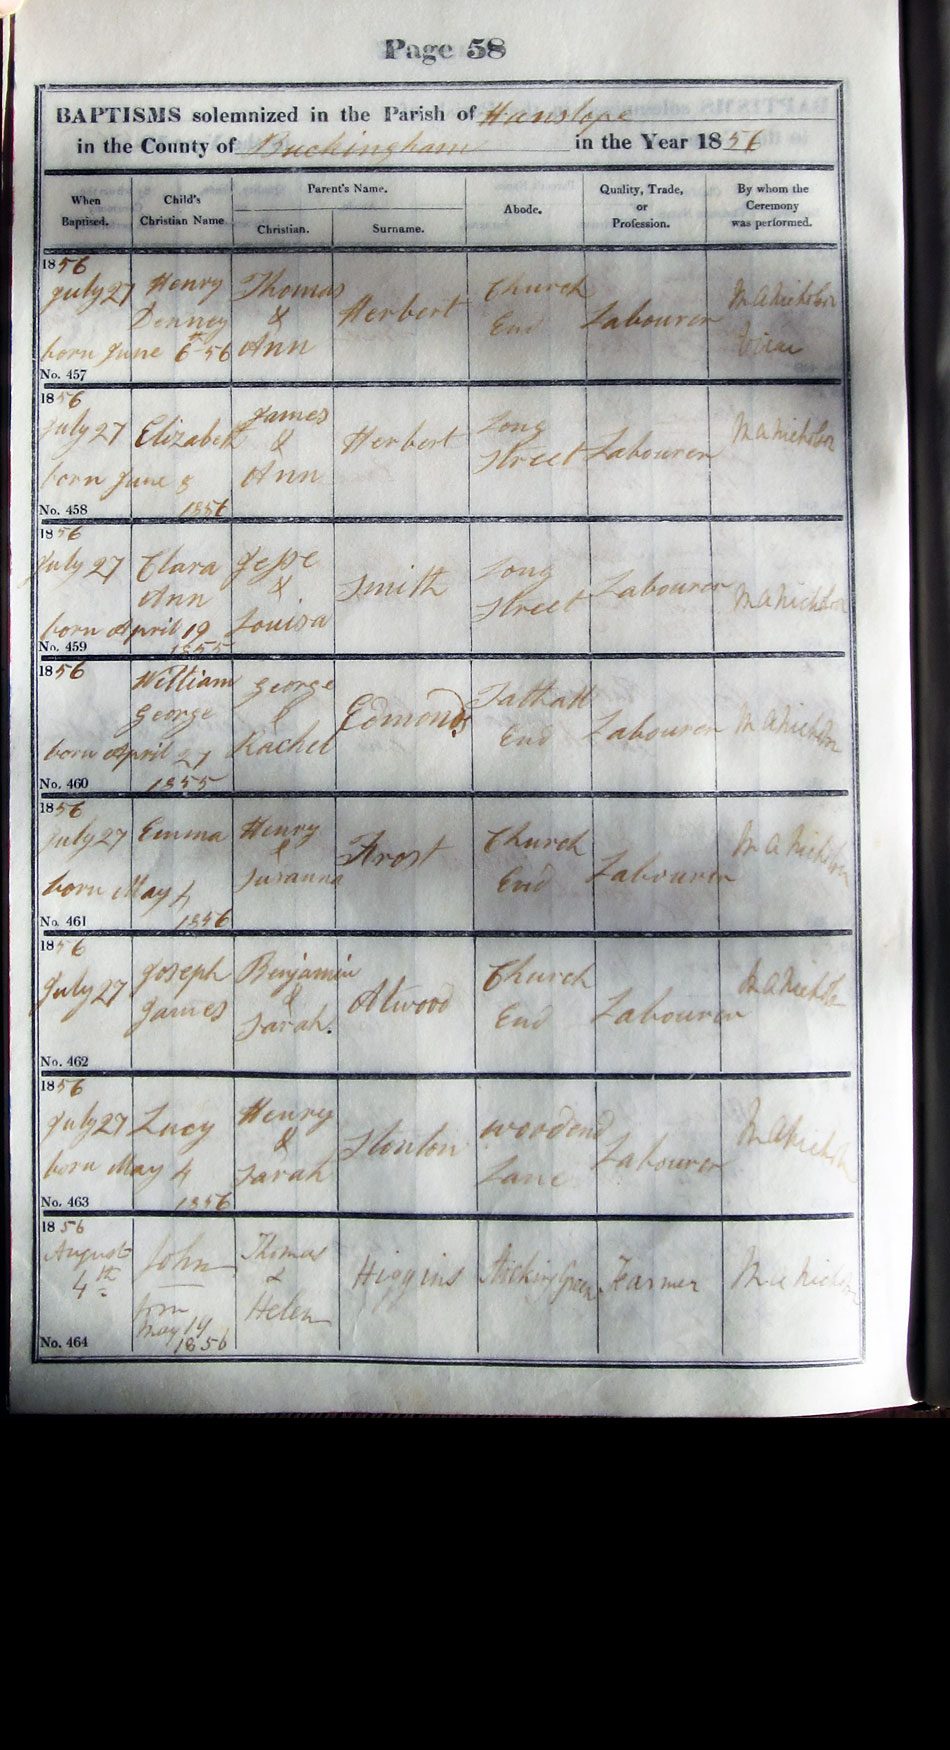 Page 58
BAPTISMS solemnized in the Parish of Hanslope
in the County of Buckingham in the Year 1856
When Baptised. Child's Christian Name Parent's Name. Christian. Surname. Abode. Quality, Trade, or Profession. By whom the Ceremony was performed.
1856
July 27 Henry Denney Thomas & Ann Herbert Church End Labourer M A Nicholson Vicar
born June 6th 56
No. 457
1856
July 27 Elizabeth James & Ann Herbert Long Street Labourer M A Nicholson
born June 8 1856
No. 458
1856
July 27 Clara Ann Jesse & Louisa Smith Long Street Labourer M A Nicholson
born April 19 1855
No. 459
1856
William George George & Rachel Edmonds Tathall End Labourer M A Nicholson
born April 27 1855
No. 460
1856
July 27 Emma Henry & Susanna Frost Church End Labourer M A Nicholson
born May 4 1856
No. 461
1856
July 27 Joseph James Benjamin & Sarah. Atwood Church End Labourer M A Nicholson
No. 462
1856
July 27 Lucy Henry & Sarah Stonton woodend Lane Labourer M A Nicholson
born May 4 1856
No. 463
1856
August 4th John Thomas & Helen Higgins Stocking Green Farmer M A Nicholson
born May 19 1856
No. 464